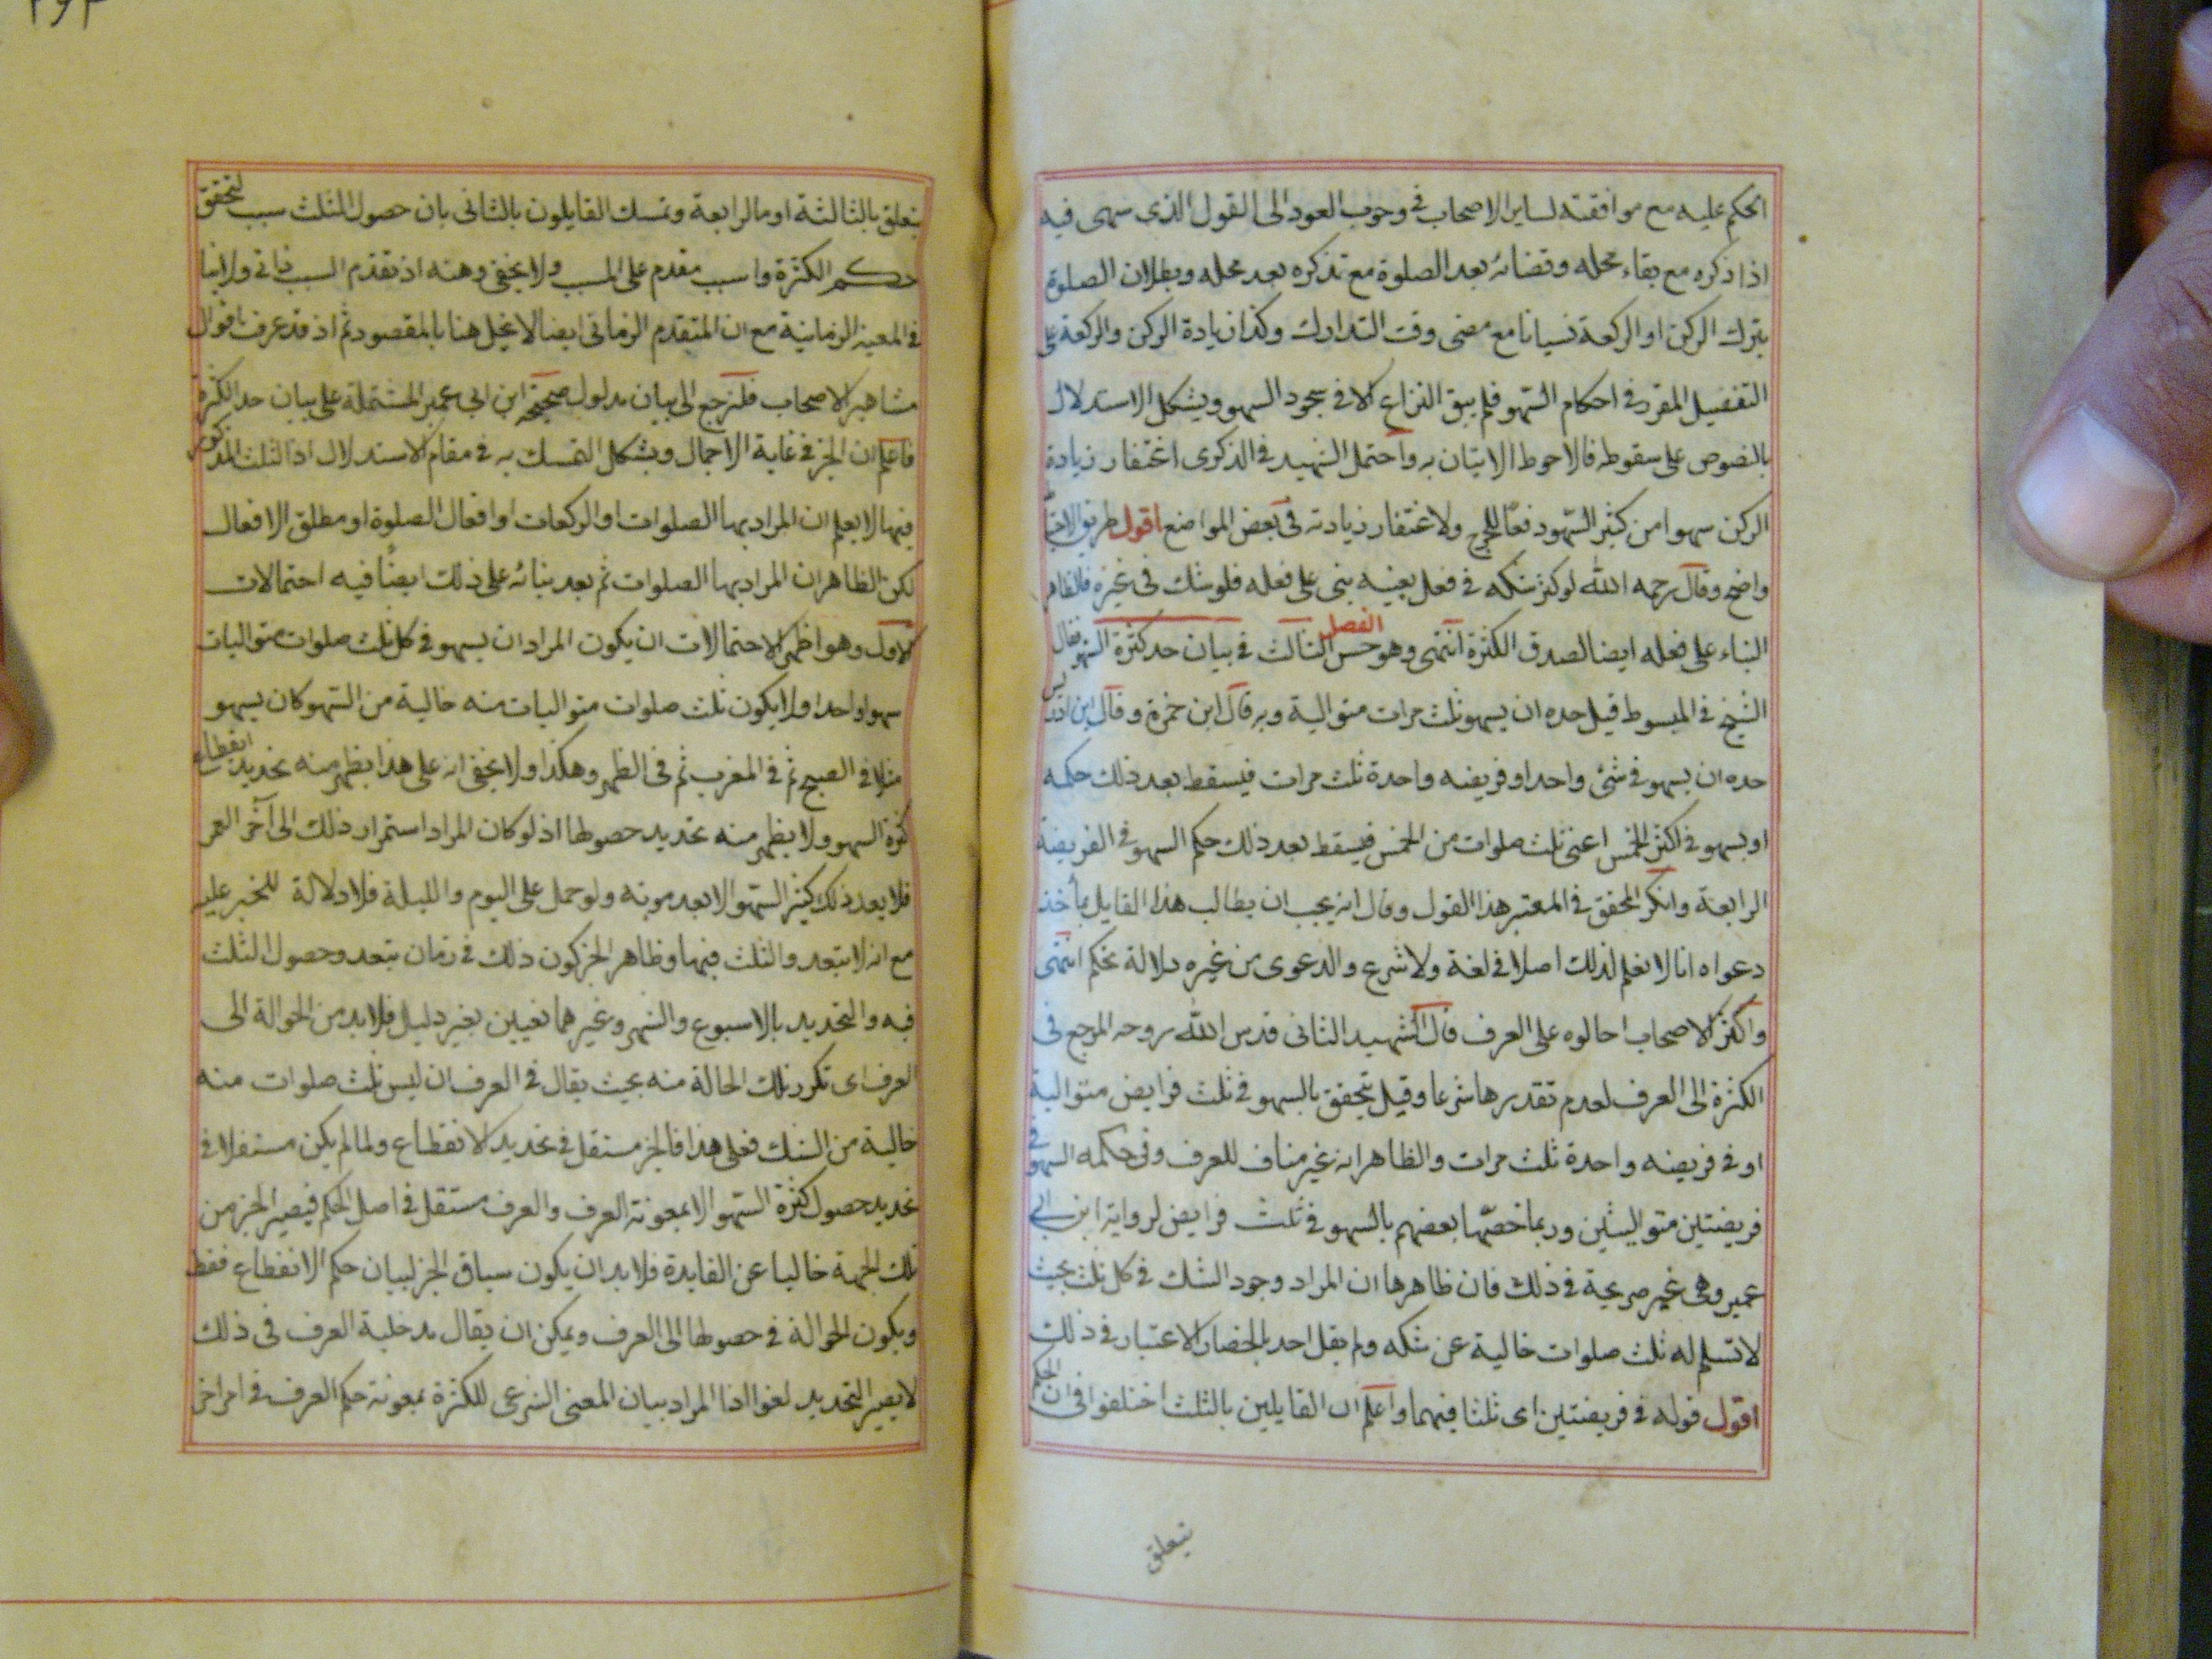 الحكم عليه مع موافقته لساير الاصحاب في وجوب العود الى القول الذى سهى فيه
اذا ذكره مع بقاء محله وقضائه بعد الصلوة مع تذكره بعد محله وبطلان الصلوة
بترك الركن او الركعة نسيانا مع مضى وقت التدارك وكذا زيادة الركن والركعة على
التفصيل المقرر في احكام السهو فلم يبق النزاع الا في سجود السهو ويشكل الاستدلال
بالنصوص على سقوطه فالاحوط الاتيان به واحتمل الشهيد في الذكرى اغتفار زيادة
الركن سهوا من كثير السهو دفعا للحرج ولاغتفار زيادته في بعض المواضع اقول طريق الاحتياط
واضح وقال رحمه الله لو كثر شكه في فعل بعينه بنى على فعله فلو شك في غيره فالظاهر
البناء على فعله ايضا لصدق الكثرة انتهى وهو حسن الفصل الثالث في بيان حد كثرة السهو فقال
الشيخ في المبسوط قيل حده ان يسهو ثلث مرات متوالية وبه قال ابن حمزة وقال ابن ادريس
حده ان يسهو في شئ واحد او فريضه واحدة ثلث مرات فيسقط بعد ذلك حكمه
او يسهو في اكثر الخمس اعنى ثلث صلوات من الخمس فيسقط بعد ذلك حكم السهو في الفريضة
الرابعة وانكر المحقق في المعتبر هذا القول وقال انه يجب ان يطالب هذا القايل بمأخذ
دعواه انا لا نعلم لذلك اصلا في لغة ولا شرع والدعوى من غيره دلالة تحكم انتهى
واكثر الاصحاب احالوه على العرف قال الشهيد الثانى قدس الله روحه المرجع في
الكثرة الى العرف لعدم تقديرها شرعا وقيل يتحقق بالسهو في ثلث فرايض متوالية
او في فريضه واحدة ثلث مرات والظاهر انه غير مناف للعرف وفى حكمه السهو في
فريضتين متواليتين وربما خصها بعضهم بالسهو في ثلث فرايض لرواية ابن ابي
عمير وهى غير صريحة في ذلك فان ظاهرها ان المراد وجود الشك في كل ثلث بحيث
لا تسلم له ثلث صلوات خالية عن شكه ولم يقل احد بانحصار الاعتبار في ذلك
اقول قوله في فريضتين اى ثلثا فيهما واعلم ان القايلين بالثلث اختلفوا في ان الحكم
يتعلق
يتعلق بالثالثة او بالرابعة وتمسك القايلون بالثانى بان حصول الثلث سبب لتحقق
حكم الكثرة والسبب مقدم على المسبب ولا يخفى وهنه اذ تقدم السبب ذاتى ولا ينا
في المعية الزمانية مع ان المتقدم الزمانى ايضا لا يخل هنا بالمقصود ثم اذ قد عرفت اقوال
مشاهير الاصحاب فلنرجع الى بيان مدلول صحيحة ابن ابي عمير المشتملة على بيان حد الكثرة
فاعلم ان الخبر في غاية الاجمال ويشكل التمسك به في مقام الاستدلال اذ الثلث المذكور
فيها لا يعلم ان المراد بها الصلوات او الركعات او افعال الصلوة او مطلق الافعال
لكن الظاهر ان المراد بها الصلوات ثم بعد بنائه على ذلك ايضا فيه احتمالات
الاول وهو اظهر الاحتمالات ان يكون المراد ان يسهو في كل ثلث صلوات متواليات
سهوا واحدا ولا يكون ثلث صلوات متواليات منه خالية من السهو كان يسهو
مثلا في الصبح ثم في المغرب ثم في الظهر وهكذا ولا يخفى انه على هذا يظهر منه تحديد انقطاع
كثرة السهو ولا يظهر منه تحديد حصولها اذ لو كان المراد استمرار ذلك الى آخر العمر
فلا يعد ذلك كثير السهو الا بعد موته ولو حمل على اليوم والليلة فلا دلالة للخبر عليه
مع انه لا يتعدد الثلث فيها وظاهر الخبر كون ذلك في زمان يتعدد حصول الثلث
فيه والتحديد بالاسبوع والشهر وغيرهما تعيين بغير دليل فلا بد من الحوالة الى
العرف اى تكرر تلك الحالة منه بحيث يقال في العرف ان ليس ثلث صلوات منه
خالية من الشك فعلى هذا فالخبر مستقل في تحديد الانقطاع ولما لم يكن مستقلا في
تحديد حصول كثرة السهو الا بمعونة العرف والعرف مستقل في اصل الحكم فيصير الخبر من
تلك الجهة خاليا عن الفايدة فلا بد ان يكون سياق الخبر لبيان حكم الانقطاع فقط
ويكون الحوالة في حصولها الى العرف ويمكن ان يقال مدخلية العرف في ذلك
لا يصير التحديد لغوا اذا المراد بيان المعنى الشرعى للكثرة بمعونة حكم العرف في امر اخر